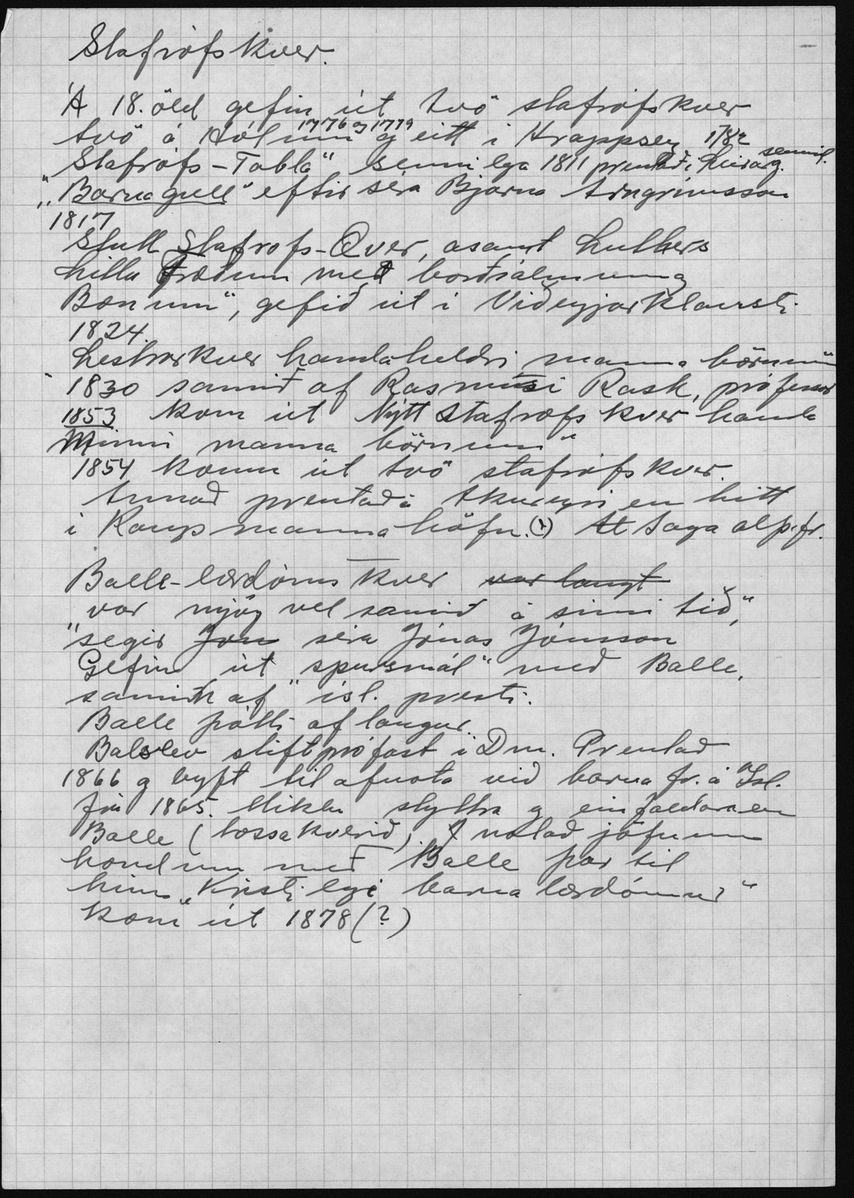 Stafrófskver.
Á 18. öld gefin út tvö stafrófskver
tvö á Hólum 1776 og 1779 og eitt í Hrappsey 1782
„Stafrófs-Tabla" sennilega 1811 prentað í Leirárg. sennil.
„Barnagull" eftir séra Bjarna Arngrímsson
1817
Stutt Stafrofs-Qver, ásamt Luthers
Litlu Fræðum með borðsálmum og
Bænum", gefið út í Viðeyjarklaustri
1824.
Lestrarkver handa heldri manna börnum
1830 samið af Rasmusi Rask, prófessor
1853 kom út Nýtt stafrófskver handa
Minni manna börnum"
1854 komu út tvö stafrófskver.
Annað prentað á Akureyri en hitt
í Kaupmannahöfn. (1) At Saga alþ.fr.
Balle-lærdómskver var langt
„var mjög vel samið á sinni tíð,"
segir Jón séra Jónas Jónsson
Gefin út „spursmál" með Balle,
samin af ísl. presti.
Balle þótti of langur.
Balslev stiftprófast í Dm. Prentað
1866 og leyft til afnota við barnafr. á Ísl.
fyr 1865. Miklu styttra og einfaldara en
Balle (tossakverið). Notað jöfnum
höndum með Balle þar til
hinn „Kristilegi barnalærdómur"
kom út 1878 (?)